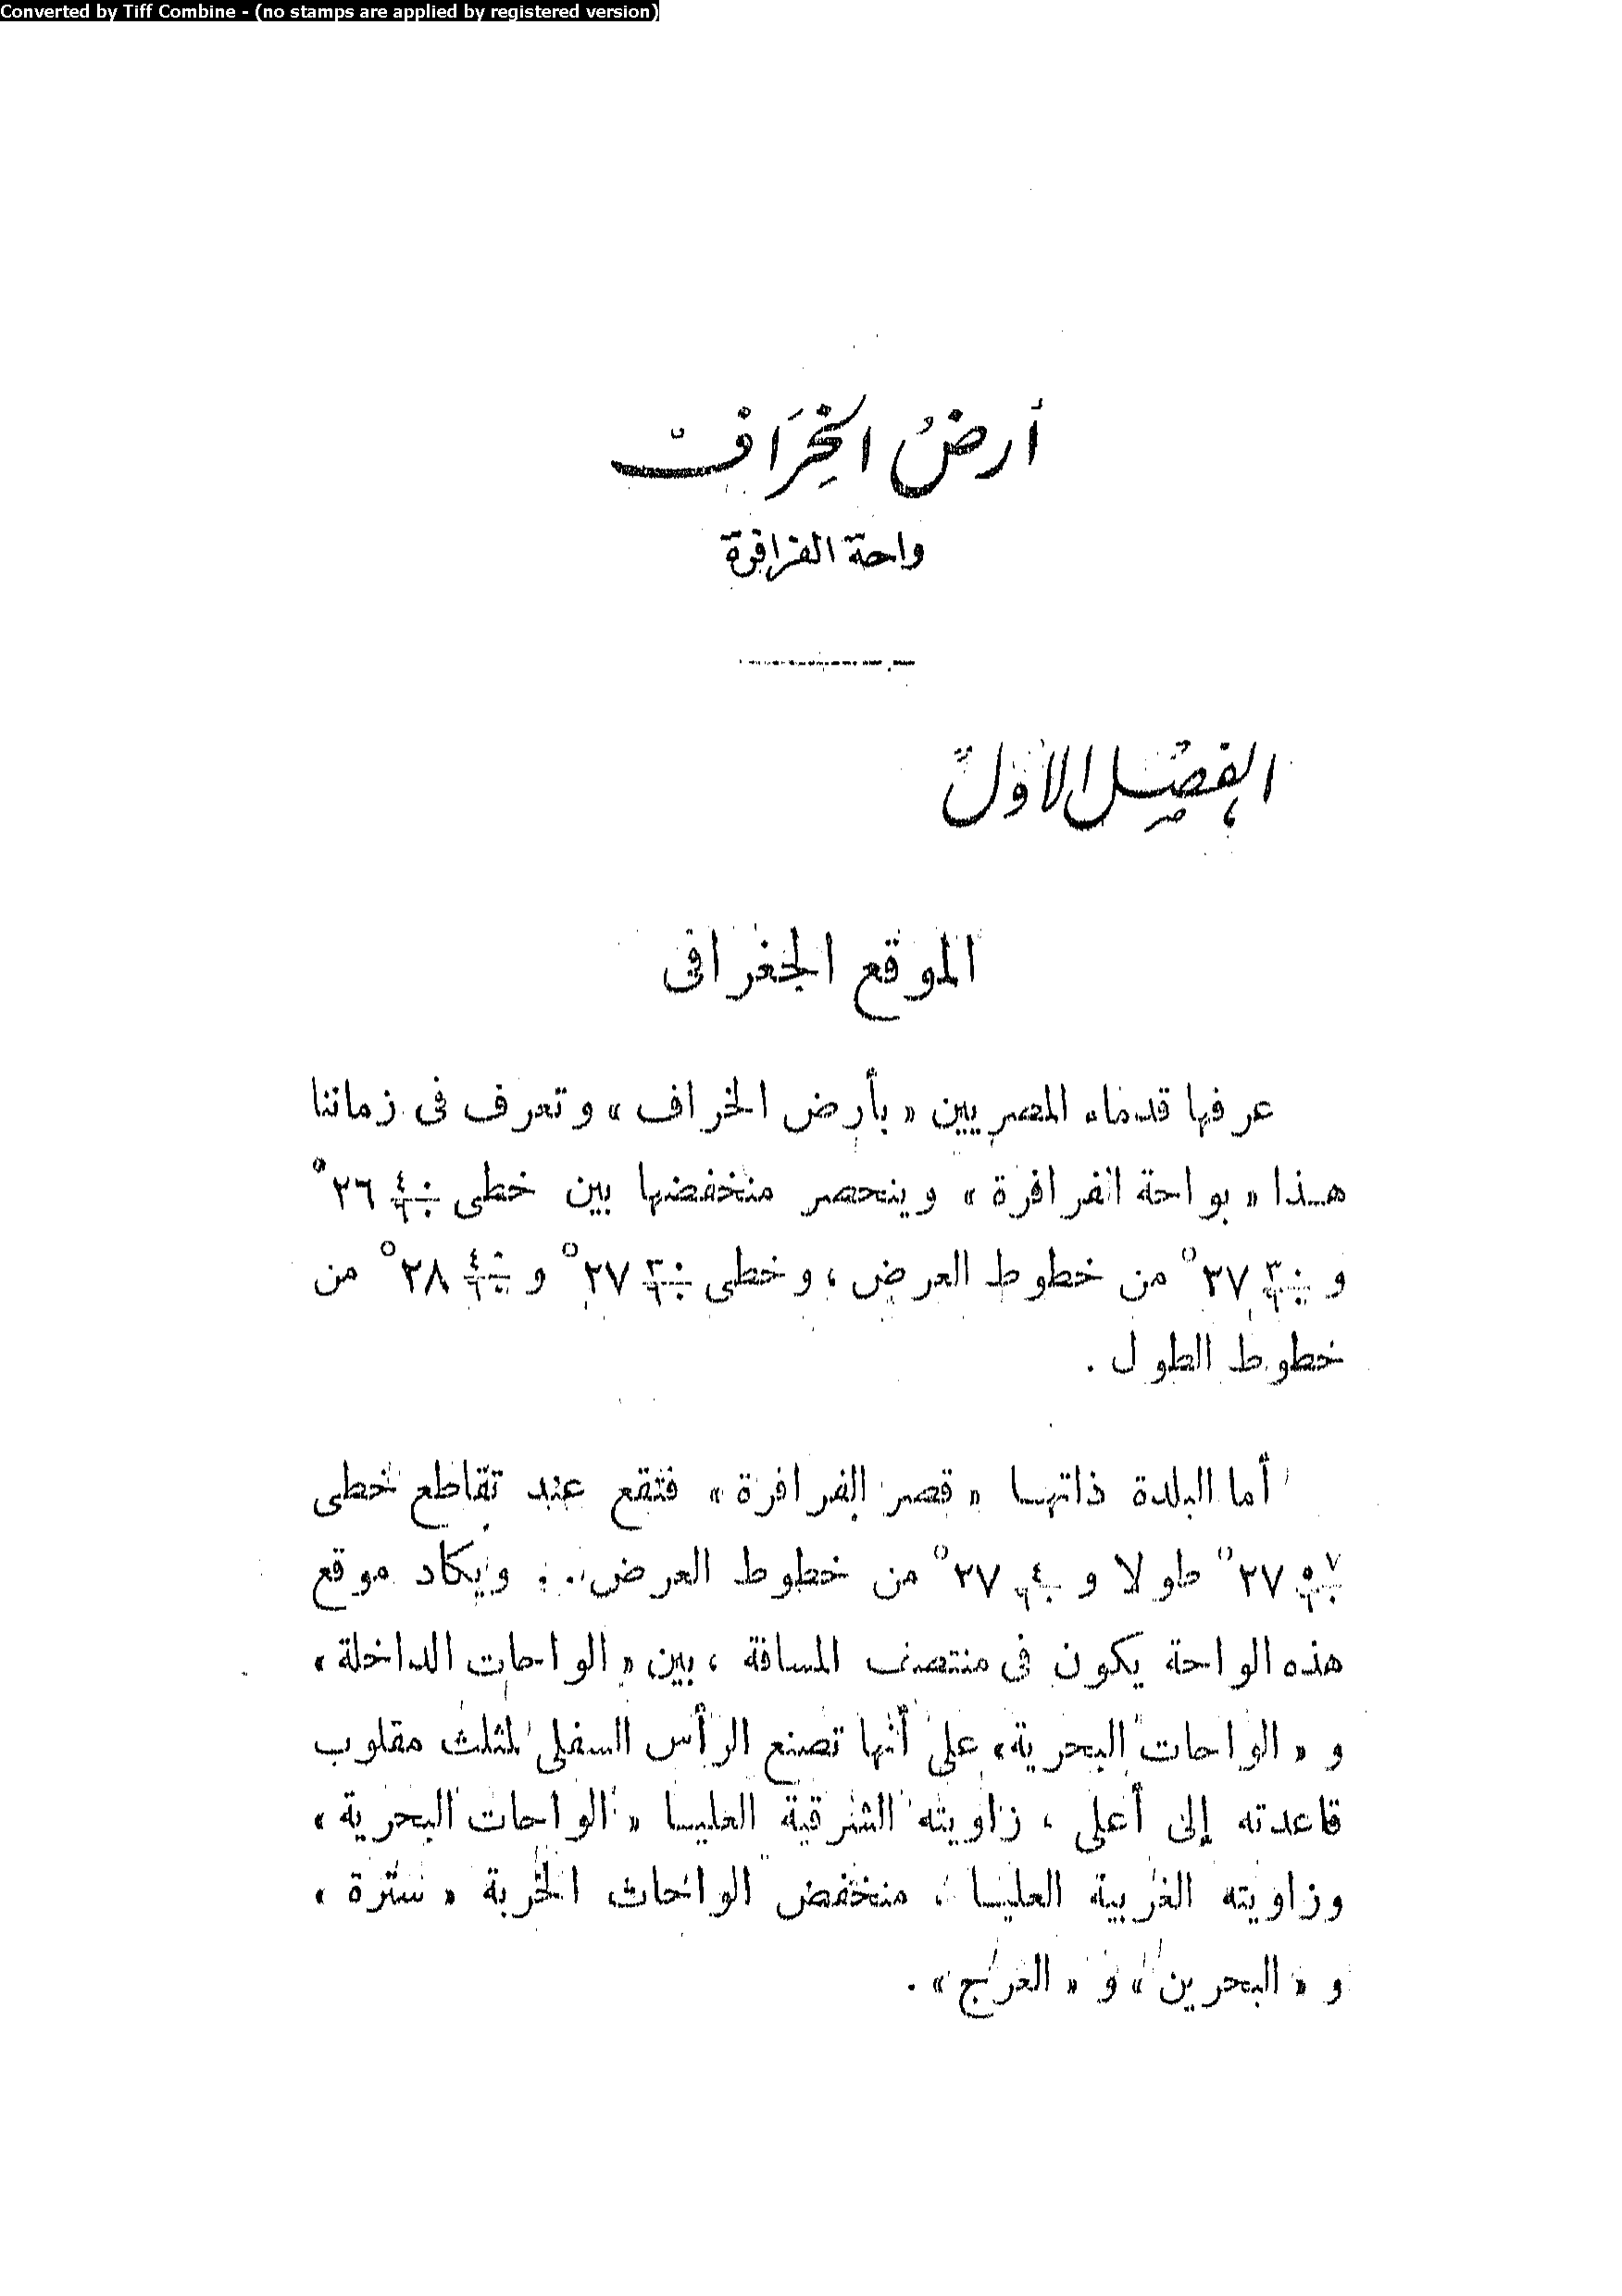 Converted by Tiff Combine - (no stamps are applied by registered version)
أرضُ الخِرَافْ
واحة الفرافرة
الفصل الأول
الموقع الجغرافى
عرفها قدماء المصريين « بأرض الخراف » وتعرف فى زماننا
هـذا « بواحة الفرافرة » وينحصر منخفضها بين خطى ٢٦°
و ٢٧° من خطوط العرض ، وخطى ٢٧° و ٢٨° من
خطوط الطول .
أما البلدة ذاتهـا « قصر الفرافرة » فتقع عند تقاطع خطى
٢٧° طولا و ٢٧° من خطوط العرض .. ويكاد موقع
هذه الواحة يكون فى منتصف المسافة ، بين « الواحات الداخلة »
و « الواحات البحرية » على أنها تصنع الرأس السفلى لمثلث مقلوب
قاعدته إلى أعلى ، زاويته الشرقية العليـا « الواحات البحرية »
وزاويته الغربية العليـا ، منخفض الواحات الخربة « سترة »
و « البحرين » و « العرج » .